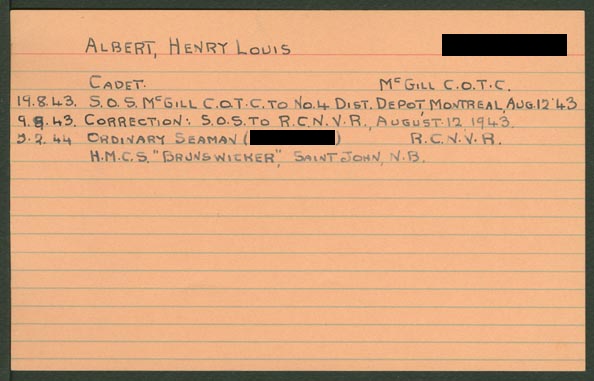 ALBERT, HENRY LOUIS
CADET. McGILL C.O.T.C.
19.8.43. S.O.S. McGILL C.O.T.C. TO No.4 DIST. DEPOT, MONTREAL, AUG.12'43
9.9.43. CORRECTION: S.O.S. TO R.C.N.V.R., AUGUST 12, 1943.
3.2.44 ORDINARY SEAMAN ( ) R.C.N.V.R.
H.M.C.S. "BRUNSWICKER", SAINT JOHN, N.B.